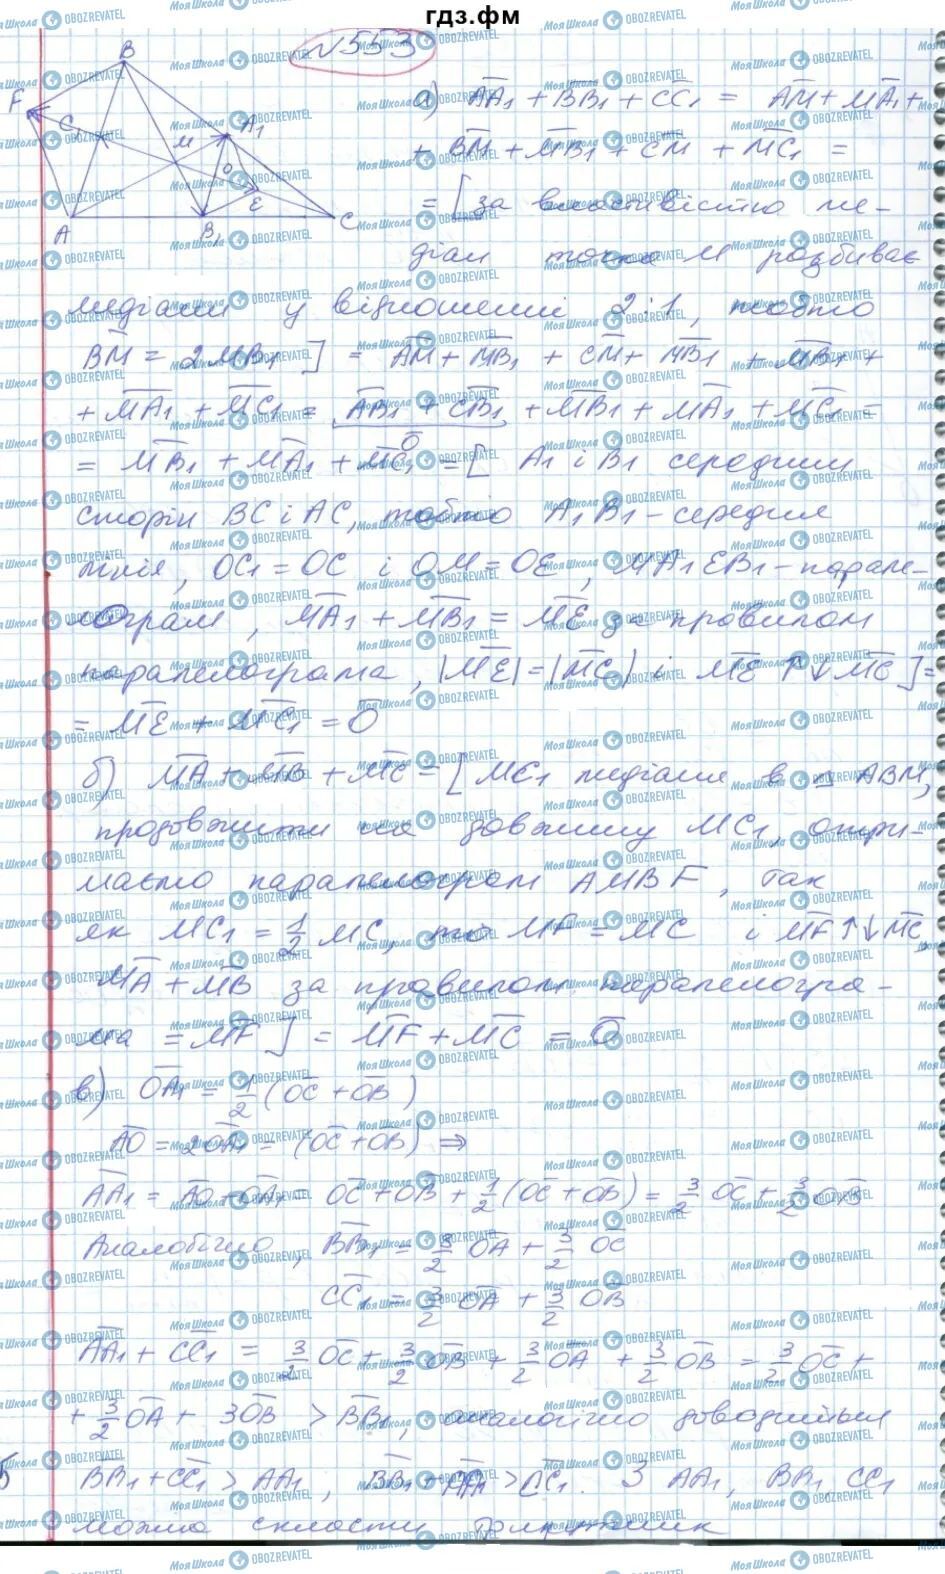 гдз.фм
№553
B
F
C₁
A₁
M
O
E
A
B₁
C
а) AA₁ + BB₁ + CC₁ = AM + MA₁ +
+ BM + MB₁ + CM + MC₁ =
= [за властивістю ме-
діан точка M розбиває
медіани у відношенні 2:1, тобто
BM = 2MB₁] = AM + MB₁ + CM + MB₁ + MB₁ +
+ MA₁ + MC₁ = AB₁ + CB₁ + MB₁ + MA₁ + MC₁ =
0
= MB₁ + MA₁ + MC₁ = [A₁ і B₁ середини
сторін BC і AC, тобто A₁B₁ - середня
лінія, OC₁ = OC і OM = OE, MA₁EB₁ - парале-
лограм, MA₁ + MB₁ = ME за правилом
паралелограма, |ME| = |MC₁| і ME ↑↓ MC] =
= ME + MC₁ = 0
б) MA + MB + MC = [MC₁ медіана в ABM,
продовжити на довжину MC₁, отри-
маємо паралелограм AMBF, так
як MC₁ = 1/2 MC, то MF = MC і MF ↑↓ MC,
MA + MB за правилом паралелогра-
ма = MF] = MF + MC = 0
в) OA₁ = 1/2 (OC + OB)
AO = 2OA₁ = (OC + OB) ⇒
AA₁ = AO + OA₁ = OC + OB + 1/2 (OC + OB) = 3/2 OC + 3/2 OB
Аналогічно, BB₁ = 3/2 OA + 3/2 OC
CC₁ = 3/2 OA + 3/2 OB
AA₁ + CC₁ = 3/2 OC + 3/2 OB + 3/2 OA + 3/2 OB = 3/2 OC +
+ 3/2 OA + 3OB > BB₁, аналогічно доводиться
BB₁ + CC₁ > AA₁; BB₁ + AA₁ > CC₁. З AA₁, BB₁, CC₁
можна скласти трикутник
МояШкола OBOZREVATEL